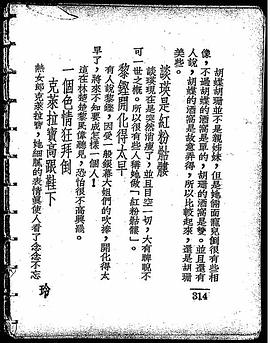 胡蝶胡珊並不是親姊妹，但是她倆面龐兒倒很有些相
像，不過胡蝶的酒窩是單的，胡珊的酒窩是雙。並且還有
人說，胡蝶的酒窩是故意弄得，所以比較起來，還是胡珊
美些。
談瑛是紅粉骷髏
談瑛現在是突然消瘦了，並且目空一切，大有睥睨不
可一世之概。所以很有些人稱她做「紅粉骷髏」。
黎鏗開化得太早
有人說黎鏗，因受一般銀幕大姐們的吹捧，開化得太
早了，將來不知要成怎樣一個人！
這在林楚楚黎民偉聽見，恐怕很不高興罷。
一個色情狂拜倒
克萊拉寶高跟鞋下
熱女郎克萊拉寶，她細膩的表情眞使人看了念念不忘
玲
314